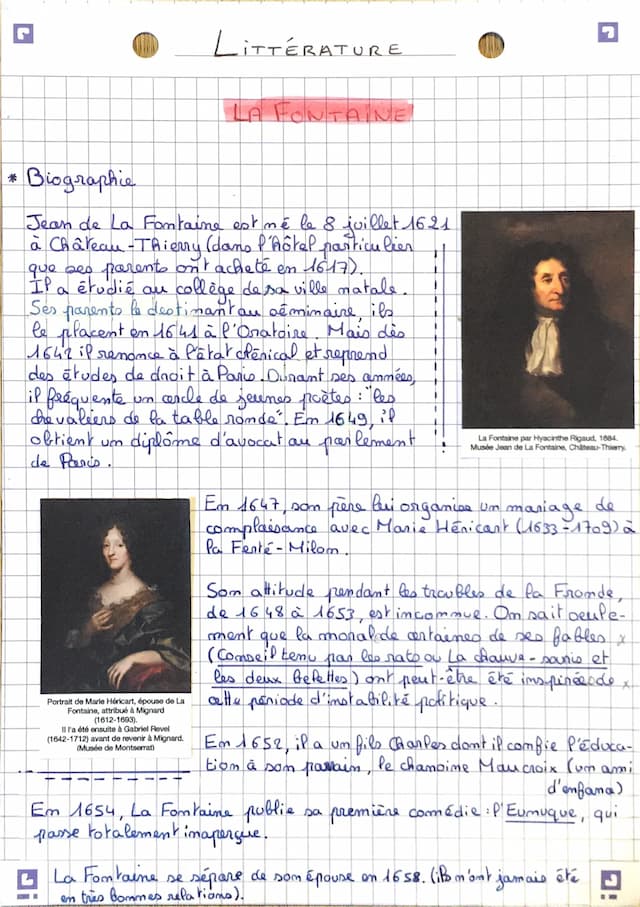 LITTÉRATURE
LA FONTAINE
* Biographie
Jean de La Fontaine est né le 8 juillet 1621
à Château-Thierry (dans l'hôtel particulier
que ses parents ont acheté en 1617).
Il a étudié au collège de sa ville natale.
Ses parents le destinant au séminaire, ils
le placent en 1641 à l'Oratoire. Mais dès
1642 il renonce à l'état clérical et reprend
des études de droit à Paris. Durant ses années,
il fréquente un cercle de jeunes poètes : "les
chevaliers de la table ronde". En 1649, il
obtient un diplôme d'avocat au parlement
de Paris.
La Fontaine par Hyacinthe Rigaud, 1684.
Musée Jean de La Fontaine, Château-Thierry.
En 1647, son père lui organise un mariage de
complaisance avec Marie Héricart (1633-1709) à
la Ferté-Milon.
Son attitude pendant les troubles de la Fronde,
de 1648 à 1653, est inconnue. On sait seule-
ment que la moral de certaines de ses fables
(Conseil tenu par les rats ou La chauve-souris et
les deux belettes) ont peut-être été inspirées de
cette période d'instabilité politique.
Portrait de Marie Héricart, épouse de La
Fontaine, attribué à Mignard
(1612-1693).
Il l'a été ensuite à Gabriel Revel
(1642-1712) avant de revenir à Mignard.
(Musée de Montserrat)
En 1652, il a un fils Charles dont il confie l'éduca-
tion à son parrain, le chanoine Maucroix (un ami
d'enfance)
En 1654, La Fontaine publie sa première comédie : l'Eunuque, qui
passe totalement inaperçue.
La Fontaine se sépare de son épouse en 1658. (ils n'ont jamais été
en très bonnes relations).